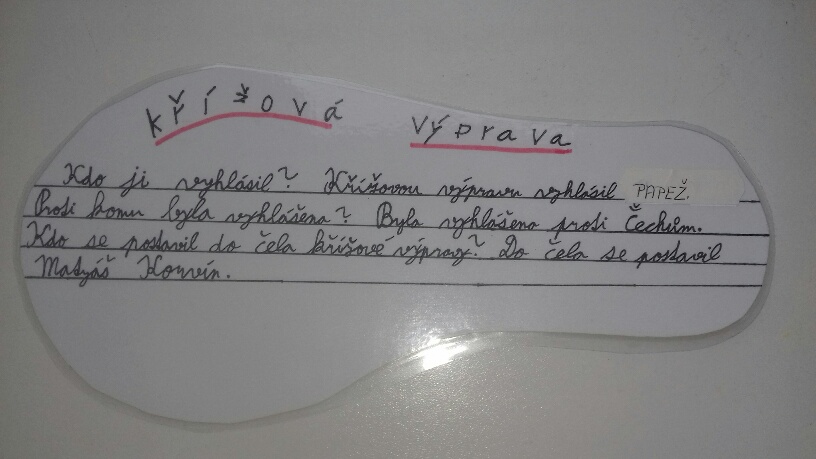 křížová výprava
Kdo ji vyhlásil? Křížovou výpravu vyhlásil PAPEŽ.
Proti komu byla vyhlášena? Byla vyhlášena proti Čechům.
Kdo se postavil do čela křížové výpravy? Do čela se postavil
Matyáš Korvín.